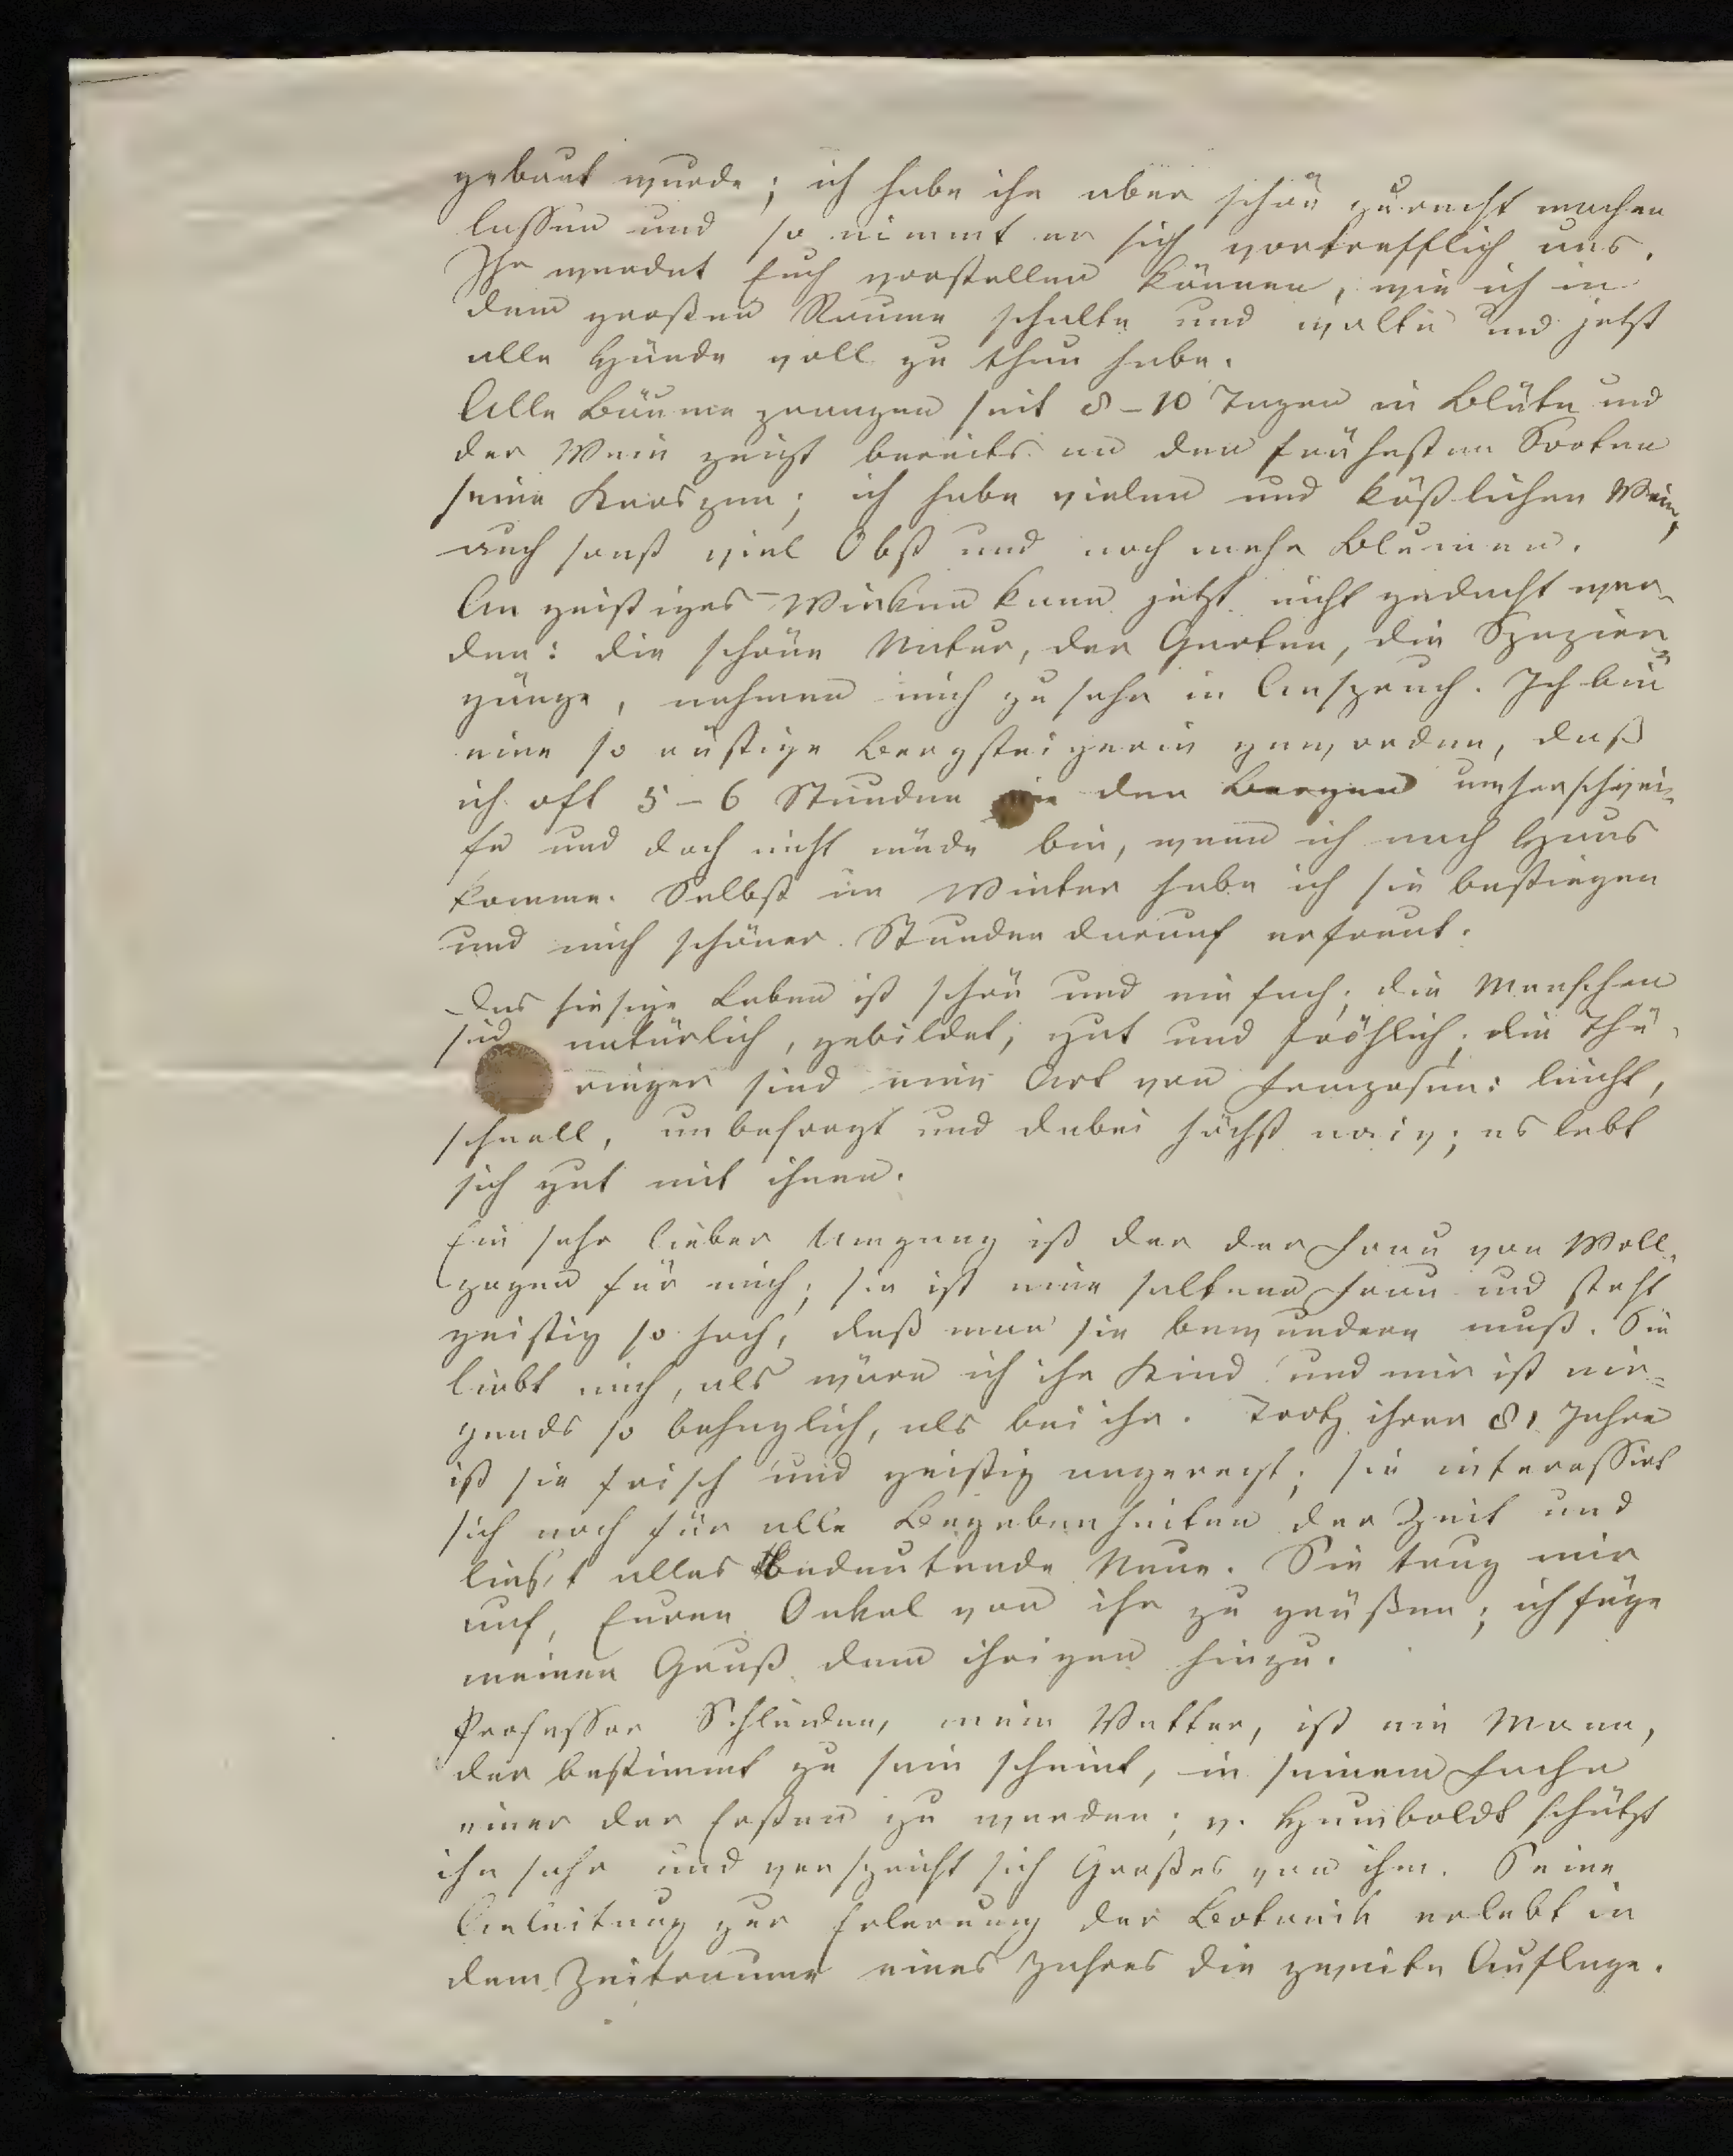 gebaut wurde; ich habe ihn aber schön zurecht machen
lassen und so nimmt er sich vortrefflich aus.
Ihr werdet Euch vorstellen können, wie ich in
dem großen Raume schalte und walte und jetzt
alle Hände voll zu thun habe.
Alle Bäume prangen seit 8-10 Tagen in Blüte und
der Wein zeigt bereits an den frühesten Sorten
seine Knospen; ich habe vielen und köstlichen Wein,
auch sonst viel Obst und noch mehr Blumen.
An geistiges Wirken kann jetzt nicht gedacht wer-
den: die schöne Natur, der Garten, die Spazier-
gänge, nehmen mich zu sehr in Anspruch. Ich bin
eine so rüstige Bergsteigerin geworden, daß
ich oft 5-6 Stunden in den Bergen umherschwei-
fe und doch nicht müde bin, wenn ich nach Haus
komme. Selbst im Winter habe ich sie bestiegen
und mich schöner Stunden darauf erfreut.
Das hiesige Leben ist schön und einfach; die Menschen
sind natürlich, gebildet, gut und fröhlich; die Thü-
ringer sind eine Art von Franzosen: leicht,
schnell, unbesorgt und dabei höchst naiv; es lebt
sich gut mit ihnen.
Ein sehr lieber Umgang ist der der Frau von Woll-
zogen für mich; sie ist eine seltene Frau und steht
geistig so hoch, daß man sie bewundern muß. Sie
liebt mich, als wäre ich ihr Kind und mir ist nir-
gends so behaglich, als bei ihr. Trotz ihrer 81 Jahre
ist sie frisch und geistig angeregt; sie interessirt
sich noch für alle Begebenheiten der Zeit und
lies't alles Bedeutende Neue. Sie trug mir
auf, Euren Onkel von ihr zu grüßen; ich füge
meinen Gruß dem ihrigen hinzu.
Professor Schleiden, mein Vetter, ist ein Mann,
der bestimmt zu sein scheint, in seinem Fache
einer der Ersten zu werden; v. Humboldt schätzt
ihn sehr und verspricht sich Großes von ihm. Seine
Anleitung zur Erlernung der Botanik erlebt in
dem Zeitraume eines Jahres die zweite Auflage.